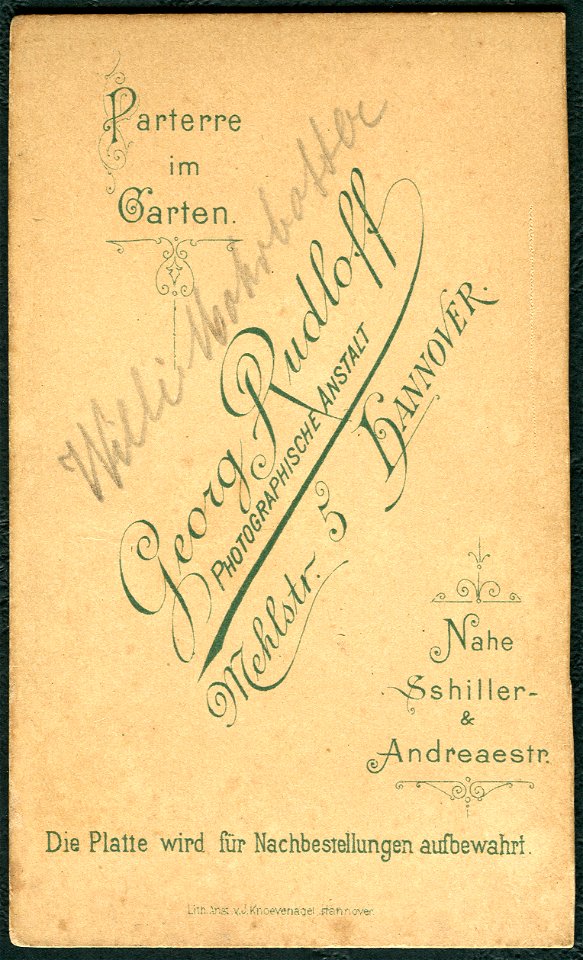 Parterre
im
Garten.
Willi
Georg Rudloff
PHOTOGRAPHISCHE ANSTALT
Mehlstr. 5 HANNOVER.
Nahe
Sshiller-
&
Andreaestr.
Die Platte wird für Nachbestellungen aufbewahrt.
Lith. Anst. v. J. Knoevenagel, Hannover.